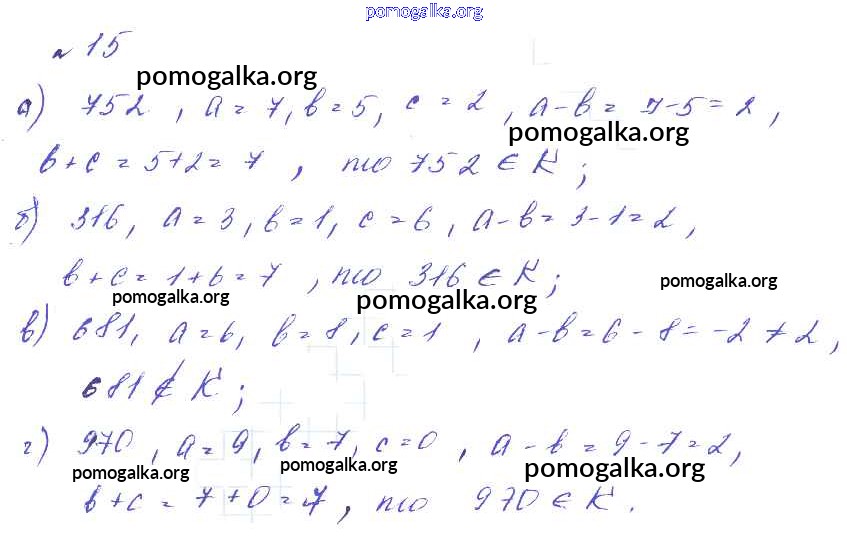 pomogalka.org
№ 15
pomogalka.org
а) 752, a = 7, b = 5, c = 2, a - b = 7 - 5 = 2,
pomogalka.org
b + c = 5 + 2 = 7, то 752 ∈ K;
б) 316, a = 3, b = 1, c = 6, a - b = 3 - 1 = 2,
b + c = 1 + 6 = 7, то 316 ∈ K;
pomogalka.org
pomogalka.org pomogalka.org
в) 681, a = 6, b = 8, c = 1, a - b = 6 - 8 = -2 ≠ 2,
681 ∉ K;
г) 970, a = 9, b = 7, c = 0, a - b = 9 - 7 = 2,
pomogalka.org pomogalka.org pomogalka.org
b + c = 7 + 0 = 7, то 970 ∈ K.